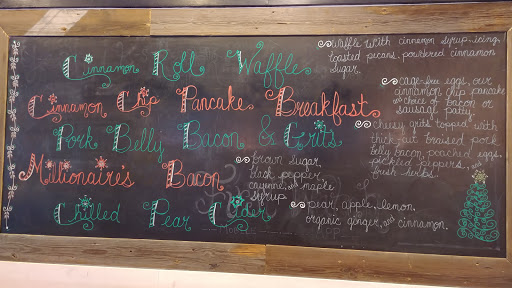 Cinnamon Roll Waffle
waffle with cinnamon syrup, icing,
toasted pecans, powdered cinnamon
sugar.
Cinnamon Chip Pancake Breakfast
cage-free eggs, our
cinnamon chip pancake
and choice of bacon or
sausage patty.
Pork Belly Bacon & Grits
cheesy grits topped with
thick-cut braised pork
belly bacon, poached eggs,
pickled peppers, and
fresh herbs.
Millionaire's Bacon
brown sugar,
black pepper,
cayenne, and maple
syrup
Chilled Pear Cider
pear, apple, lemon,
organic ginger, and cinnamon.